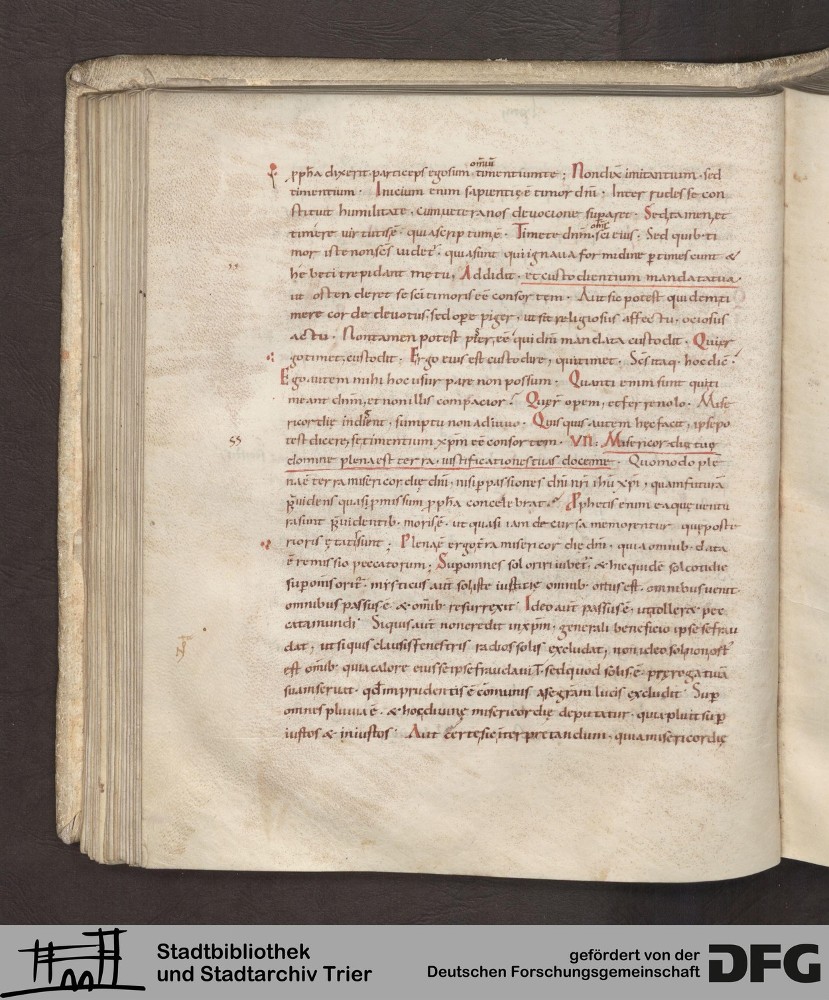 ꝓph̅a dixerit. particeps ego sum om̅iu̅ timentium te; Non dix̅ imitantium. sed
timentium. Inicium enim sapientię ē timor dn̅i. Inter rudes se con
stituit humilitate. cum ueteranos deuocione sup̲aret. Sed tamen et
timere uirtutis ē. Timete dn̅m om̅s sc̅i eius. Sed quib. ti
mor iste non sē uidet̅. quia sunt qui ignaua formidine ꝑtimescunt &
hebeti trepidant metu, Addidit. et custodientium mandata tua.
ut ostenderet se sc̅i timoris eē consortem. Aut sic potest qui dem ti
mere corde deuotus. sed oꝑe piger. ut sit religiosus affectu. ociosus
actu. Non tamen potest qui dn̅i mandata custodit. Qui er
go timet. custodit. Ergo eius est custodire, qui timet. hoc dic̅.
Ego autem mihi hoc usurpare non possum. Quanti enim sunt qui ti
meant dn̅m, et non illis compacior? opem, et ferre nolo. Mise
ricordię indigent. sumptu non adiuuo. Quisquis autem hęc facit, ipse po
test dicere, se timentium xp̅m eē consortem. VN. Misericordia tua
55
domine plena est terra. iustificationes tuas doce me. Quomodo ple
na ē terra misericordię dn̅i. nisi ꝑ passiones dn̅i nr̅i ih̅u xp̅i, quam futura̅
ꝓuidens quasi ꝓmissum ꝓph̅a concelebrat. Ꝓphetis enim ea quę uentu
ra sunt ꝓuidentib. moris ē. ut quasi iam decursa memorentur quę poste
rioris ętatis sunt; Plena ē ergo t̅ra misericordię dn̅i. quia omnib. data
ē remissio peccatorum; Sup̲ omnes sol oriri iubet̅. & hic quidē sol cotidie
sup̲ om̅s orit̅. mysticus aut̅ sol iste iustitię omnib. ortus est. omnibus uenit.
omnibus passus ē. & om̅ib. resurrexit. Ideo aut̅ passus ē, ut tolleret pec
cata mundi. Siquis aut̅ non credit in xp̅m. generali beneficio ipse se frau
dat, ut siquis clausis fenestris radios solis excludat, non ideo sol non ort
est om̅ib. quia calore eius se ipse fraudauit. sed quod solis ē. prerogatiua̅
suam seruat. qđ imprudentis ē cōmunis a se gram lucis excludit. Sup̲
omnes pluuia ē. & hoc diuinę misericordię deputatur. quia pluit sup̲
iustos & iniustos. Aut certe sic interpretandum. quia misericordię
Stadtbibliothek
und Stadtarchiv Trier
gefördert von der
Deutschen Forschungsgemeinschaft
DFG